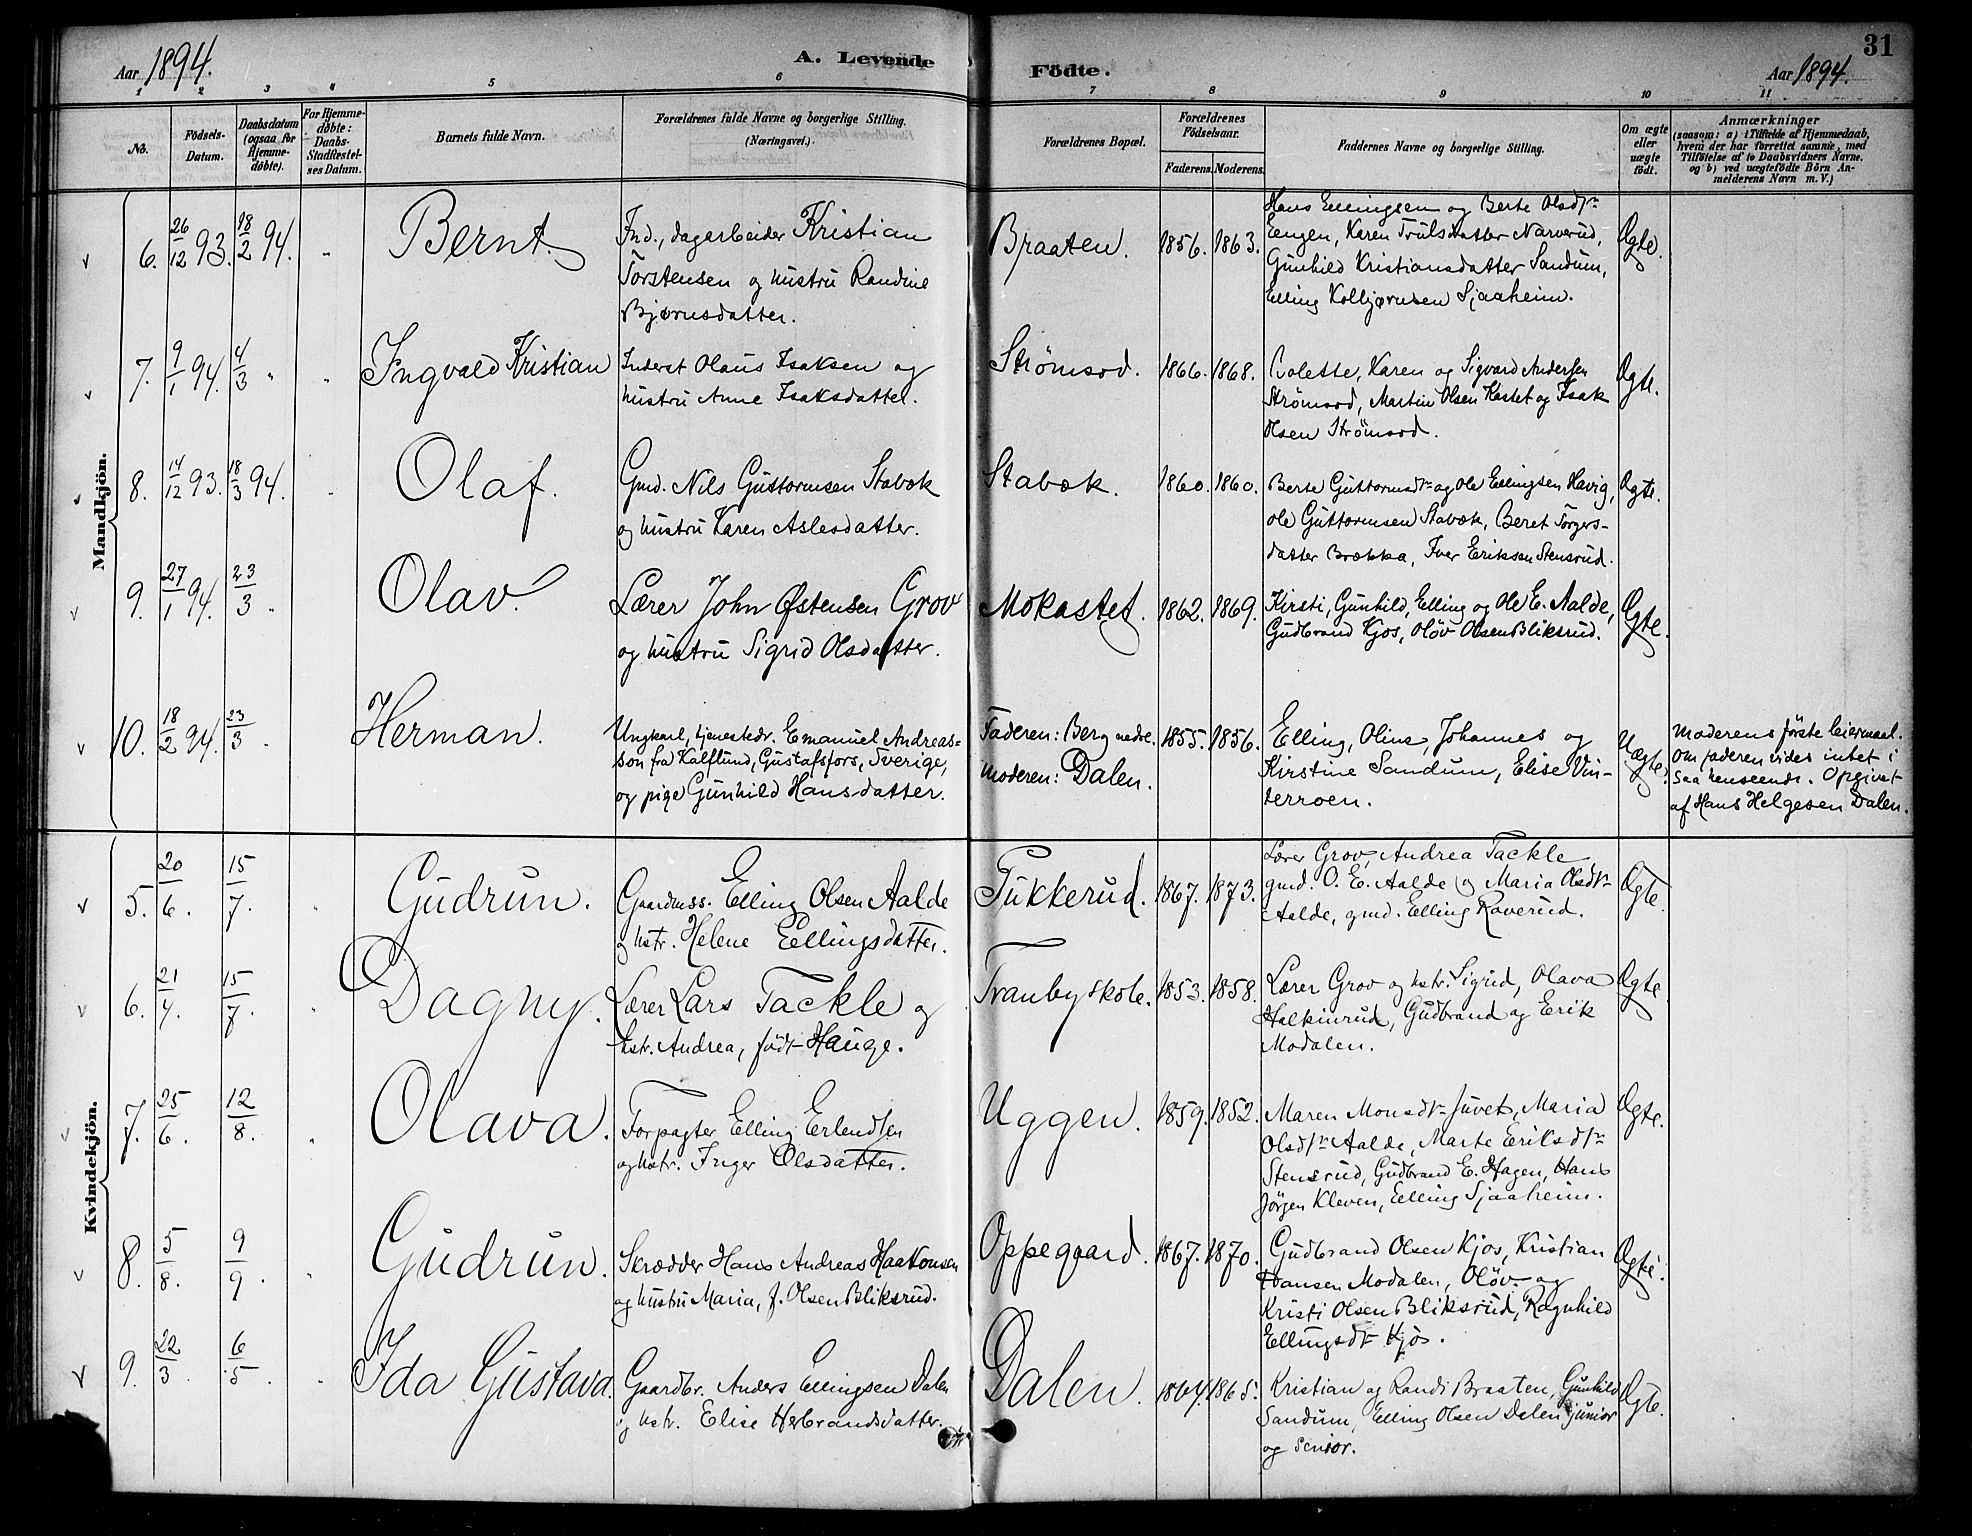 Aar 1894. A. Levende Födte. Aar 1894. 31
1 2 3 4 5 6 7 8 9 10 11
No. Födsels-Datum. Daabsdatum (ogsaa for Hjemmedøbte). For Hjemmedøbte: Daabs-Stadfæstelses Datum. Barnets fulde Navn. Forældrenes fulde Navne og borgerlige Stilling. (Næringsvei). Forældrenes Bopæl. Forældrenes Födselsaar. Faderens. Moderens. Faddernes Navne og borgerlige Stilling. Om ægte eller uægte født. Anmærkninger (saasom: a) i Tilfælde af Hjemmedaab, hvem der har forrettet samme, med Tilføielse af to Daabsvidners Navne. og b) ved uægtefödte Börn Anmelderens Navn m. V.)
Mandkjön.
6. 26/12 93. 18/2 94. " Bernt. Ind., dagarbeider Kristian
Torstensen og hustru Randine
Bjørnsdatter.
Braaten. 1856. 1863.
Hans Ellingsen og Berte Olsdtr
Eengen, Karen Trulsdatter Narverud,
Gunhild Kristiansdatter Sandum,
Elling Kolbjørnsen Sjaaheim.
Ægte.
7. 9/1 94. 4/3 " " Ingvald Kristian Inderst Olaus Isaksen og
hustru Anne Isaksdatter.
Strömsod. 1866. 1868.
Bolette, Karen og Sigvard Andersen
Strömsod, Martin Olsen Kastet og Isak
Olsen Strömsod.
Ægte.
8. 14/12 93. 18/3 94. Olaf. Gmd. Nils Guttormsen Stabæk
og hustru Karen Aslesdatter.
Stabæk. 1860. 1860.
Berte Guttormsdtr og Ole Ellingsen Havig,
Ole Guttormsen Stabæk, Beret Torgers-
datter Brækka, Iver Eriksen Stensrud.
Ægte.
9. 27/1 94. 23/3 " Olav. Lærer John Østensen Grov
og hustru Sigrid Olsdatter.
Mokastet. 1862. 1869.
Kirsti, Gunhild, Elling og Ole E. Aalde,
Gudbrand Kjos, Olöv Olsen Bliksrud.
Ægte.
10. 18/2 94. 23/3 Herman. Ungkarl, tjenestedr. Emanuel Andreas-
son fra Kalflund, Gustafsfors, Sverige,
og pige Gunhild Hansdatter.
Faderen: Berg nedre.
Moderen: Dalen.
1855. 1856.
Elling, Oline, Johannes og
Kirstine Sandum, Elise Vin-
terroen.
Uægte.
Moderens förste leiermaal.
Om faderen vides intet i
saa henseende. Opgivet
af Hans Helgesen Dalen.
Kvindekjön.
5. 20/6. 15/7. Gudrun. Gaardmss. Elling Olsen Aalde
og hstr. Helene Ellingsdatter.
Tukkerud. 1867. 1873.
Lærer Grov, Andrea Tackle
gmd. O. E. Aalde og Maria Olsdtr
Aalde, gmd. Elling Raverud.
Ægte.
6. 21/4. 15/7. Dagny. Lærer Lars Tackle og
hstr. Andrea, født Hauge.
Tranby skole. 1853. 1858.
Lærer Grov og hstr. Sigrid, Olava
Halkinrud, Gudbrand og Erik
Modalen.
Ægte.
7. 25/6. 12/8. Olava. Forpagter Elling Erlendsen
og hstr. Inger Olsdatter.
Uggen. 1859. 1852.
Maren Monsdtr Juvet, Maria
Olsdtr Aalde, Marte Eriksdtr
Stensrud, Gudbrand E. Hagen, Hans
Jörgen Kleven, Elling Sjaaheim.
Ægte.
8. 5/8. 9/9. Gudrun. Skrædder Hans Andreas Haakonsen
og hustru Maria, f. Olsen Bliksrud.
Oppegaard. 1867. 1870.
Gudbrand Olsen Kjos, Kristian
Hansen Modalen, Olöv og
Kristi Olsen Bliksrud, Ragnhild
Ellingsdt Kjos.
Ægte.
9. 22/3. 6/5. Ida Gustava. Gaardbr. Anders Ellingsen Dalen
og hstr. Elise Herbrandsdatter.
Dalen. 1864. 1865.
Kristian og Randi Braaten, Gunhild
Sandum, Elling Olsen Dalen junior
og senior.
Ægte.